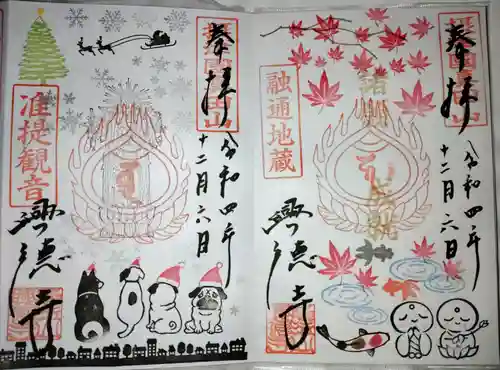 奉拝
令和四年
十二月六日
准提観音
興徳寺
奉拝
令和四年
十二月六日
融通地蔵
興徳寺